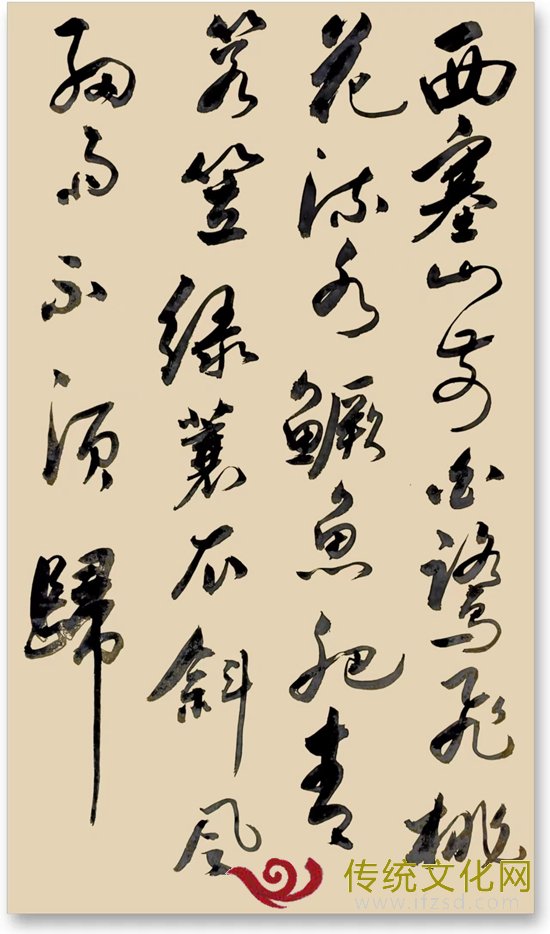 西塞山前白鹭飞桃
花流水鳜鱼肥青
箬笠绿蓑衣斜风
细雨不须歸
传统文化网
www.ifzsd.com